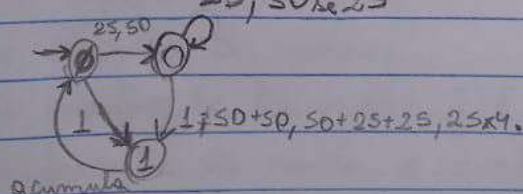 25, 50 se 25
25, 50
0
1
1 $ 50+50, 50+25+25, 25x4.
1
acumula